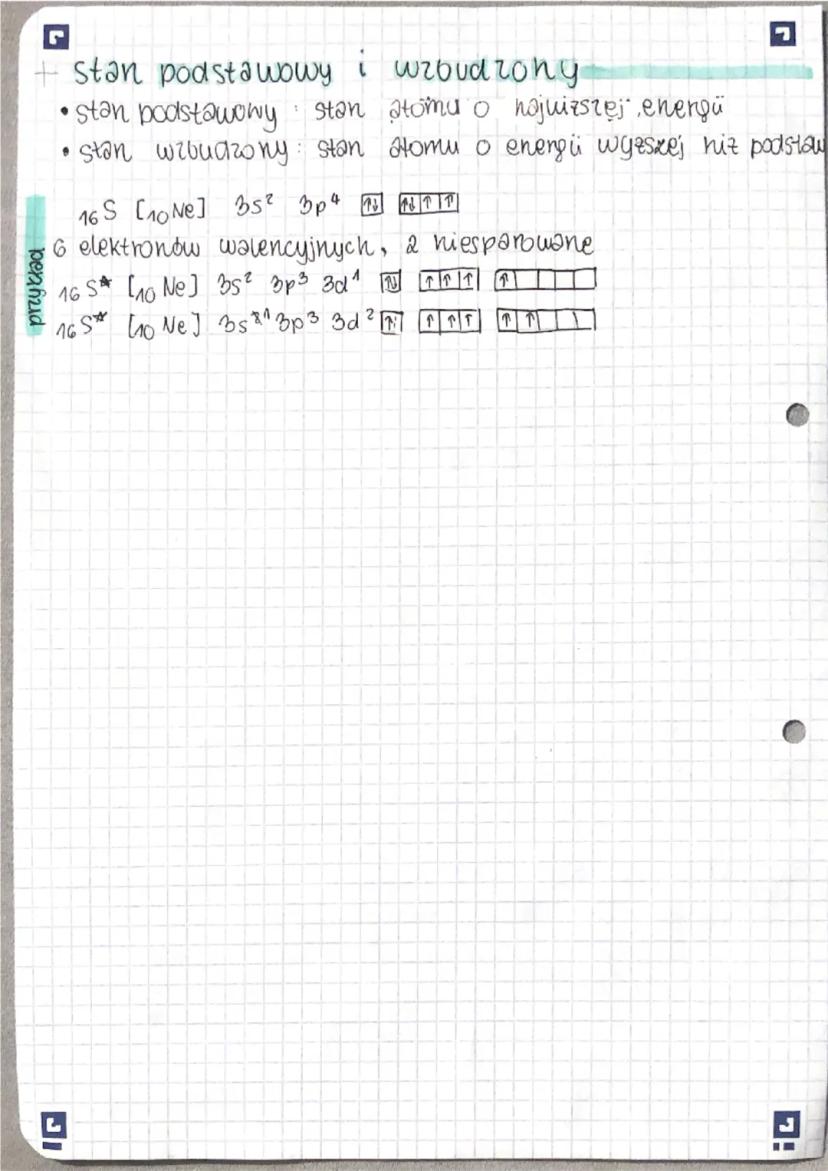 + stan podstawowy i wzbudzony
• stan podstawowy : stan atomu o najniższej energii
• stan wzbudzony : stan atomu o energii wyższej niż podstaw
przykład
16 S [10 Ne] 3s² 3p⁴ ↑↓ ↑↓ ↑ ↑
6 elektronów walencyjnych, 2 niesparowane
16 S* [10 Ne] 3s² 3p³ 3d¹ ↑↓ ↑ ↑ ↑ ↑
16 S* [10 Ne] 3s¹ 3p³ 3d² ↑ ↑ ↑ ↑ ↑ ↑